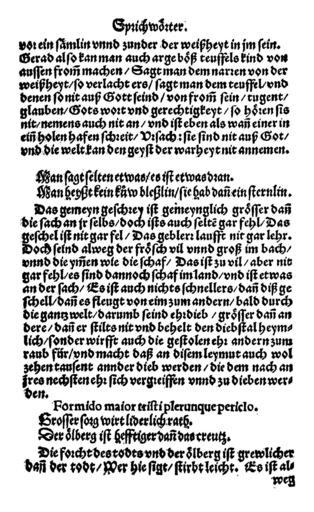 Sprichwörter.
vor ein sämlin vnnd zunder der weißheyt in jm sein.
Gerad also kan man auch arge böß teuffels kind von
aussen from̃ machen / Sagt man dem narren von der
weißheyt / so verlacht ers / sagt man dem teuffel / vnd
denen so nit auß Gott seind / von from̃ sein / tugent /
glauben / Gots wort vnd gerechtigkeyt / so hören sis
nit / nemens auch nit an / vnd ist eben als wañ einer in
ein holen hafen schreit / Vrsach: sie sind nit auß Got /
vnd die welt kan den geyst der warheyt nit annemen.
Man sagt selten etwas / es ist etwas dran.
Man heyßt kein küw bleßlin / sie hab dañ ein sternlin.
Das gemeyn geschrey ist gemeynglich grösser dañ
die sach an jr selbs / doch ists auch seltē gar fehl / Das
geschel ist nit gar fel / Das geblerr laufft nit gar lehr.
Doch seind alweg der frösch vil vnnd groß im bach /
vnnd die ym̃en wie die schaf / Das ist zu vil / aber nit
gar fehl / es sind dannoch schaf im land / vnd ist etwas
an der sach / Es ist auch nichts schnellers / dañ diß ge
schell / dañ es fleugt von eim zum andern / bald durch
die gantz welt / darumb seind ehrdieb / grösser dañ an
dere / dañ er stilts nit vnd behelt den diebstal heym-
lich / sonder wirfft auch die gestolen ehr andern zum
raub für / vnd macht daß an disem leymut auch wol
zehen tausent annder dieb werden / die dem nach an
jres nechsten ehr sich vergreiffen vnnd zu dieben wer-
den.
Formido maior tristi plerunque periclo.
Grosser sorg wirt liderlich rath.
Der ölberg ist hefftiger dañ das creutz.
Die forcht des todts vnd der ölberg ist grewlicher
dañ der todt / Wer hie sigt / stirbt leicht. Es ist al-
weg